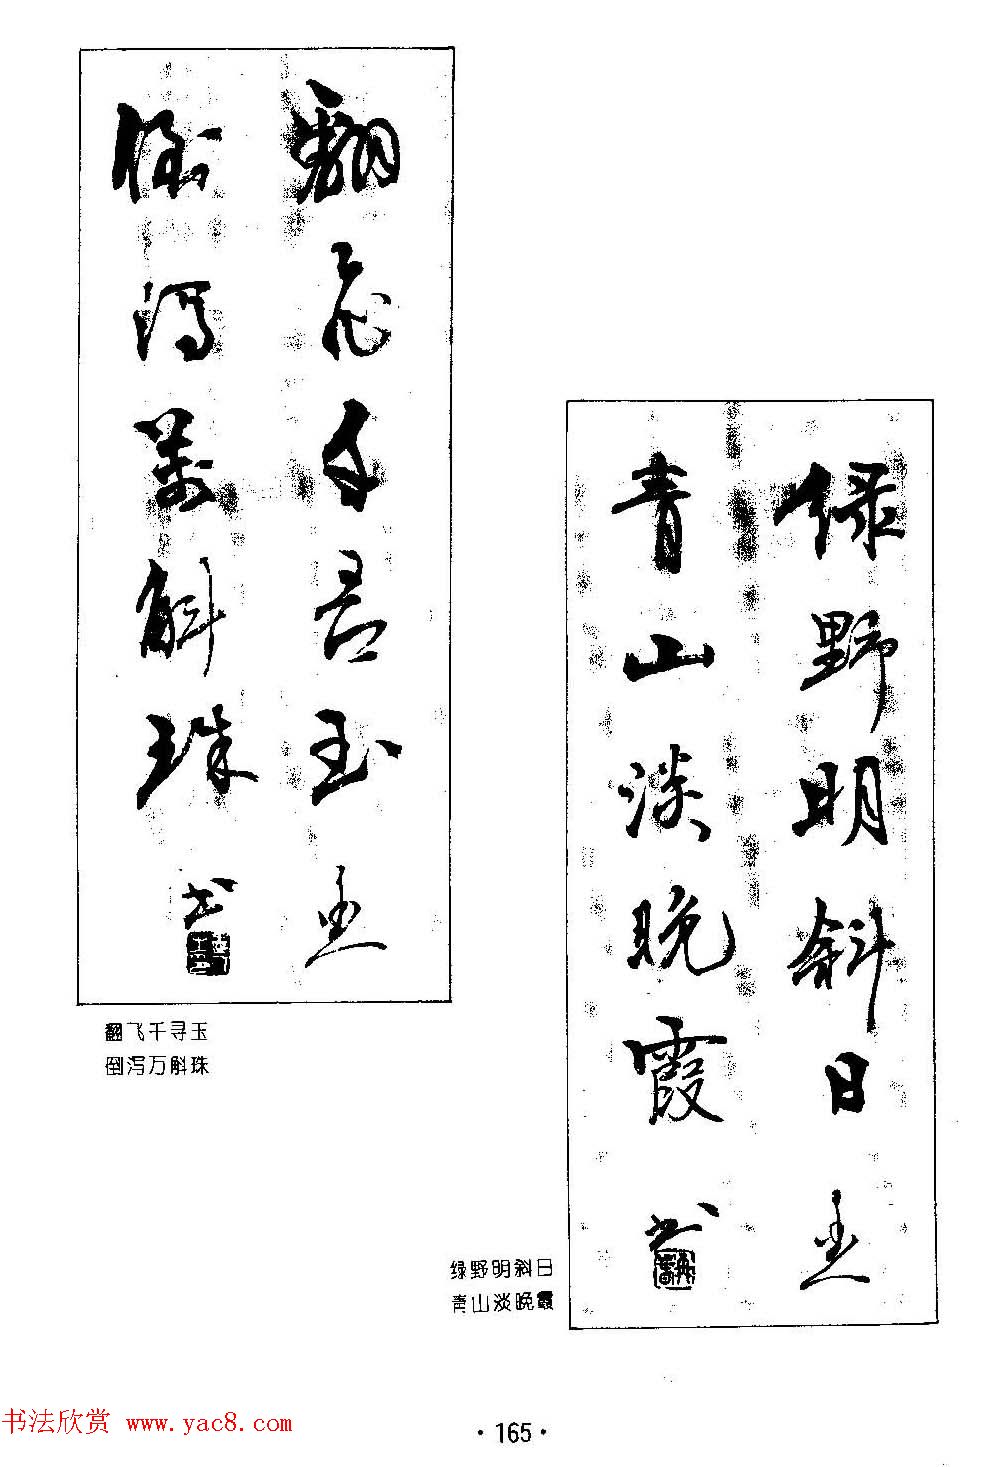 翻飛千尋玉
倒瀉萬斛珠
书
翻飞千寻玉
倒泻万斛珠
绿野明斜日
青山淡晚霞
书
绿野明斜日
青山淡晚霞
书法欣赏 www.yac8.com
·165·